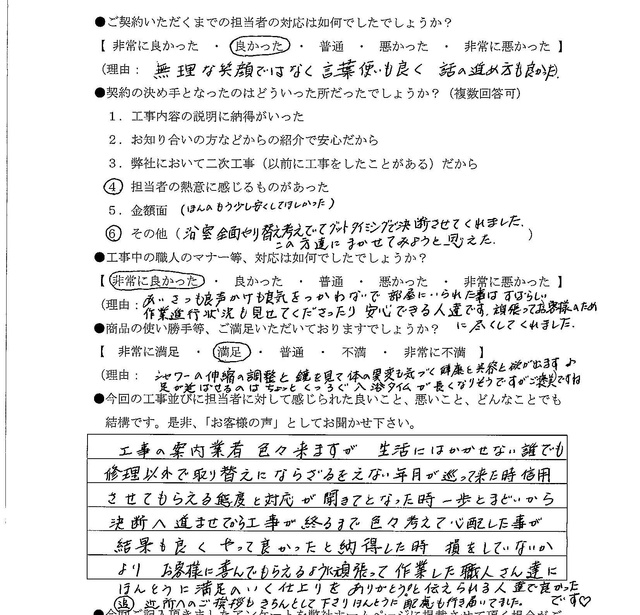 ●ご契約いただくまでの担当者の対応は如何でしたでしょうか？
【 非常に良かった ・ 良かった ・ 普通 ・ 悪かった ・ 非常に悪かった 】
(理由： 無理な笑顔ではなく言葉使いも良く 話の進め方も良かった)
●契約の決め手となったのはどういった所だったでしょうか？（複数回答可）
１．工事内容の説明に納得がいった
２．お知り合いの方などからの紹介で安心だから
３．弊社において二次工事（以前に工事をしたことがある）だから
④ 担当者の熱意に感じるものがあった
５．金額面 (ほんのもう少し安くしてほしかった)
⑥ その他（浴室全面やり替え考えていてグットタイミングで決断させてくれました.
この方達にまかせてみようと思えた. )
●工事中の職人のマナー等、対応は如何でしたでしょうか？
【 非常に良かった ・ 良かった ・ 普通 ・ 悪かった ・ 非常に悪かった 】
(理由： あいさつも良声かけも良気をつかわないで 部屋にいられた事はすばらしい
作業進行状況も見せてくださったり 安心できる人達です. 頑張ってお客様のため
に尽くしてくれました.
●商品の使い勝手等、ご満足いただいておりますでしょうか？
【 非常に満足 ・ 満足 ・ 普通 ・ 不満 ・ 非常に不満 】
(理由： シャワーの伸縮の調整と 鏡を見て体の異変も気づく 健康と美容と欲が出ます♪
足が延ばせるのは ちょっとくつろぐ 入浴タイムが長くなりそうですがご褒美ですね
●今回の工事並びに担当者に対して感じられた良いこと、悪いこと、どんなことでも
結構です。是非、「お客様の声」としてお聞かせ下さい。
工事の案内業者 色々来ますが 生活にはかかせない誰でも
修理以外で取り替えにならざるをえない年月が巡って来た時信用
させてもらえる態度と対応が 聞きてとなった時一歩とまどいから
決断へ進ませてから工事が終るまで 色々考えて心配した事が
結果も良く やって良かったと納得した時 損をしていないか
より お客様に喜んでもらえるように頑張って作業した職人さん達に
ほんとうに満足のいく仕上りをありがとうと伝えられる人達で良かった
です♡
追 近所へのご挨拶もきちんとして下さりほんとうに配慮も行き届いてました.